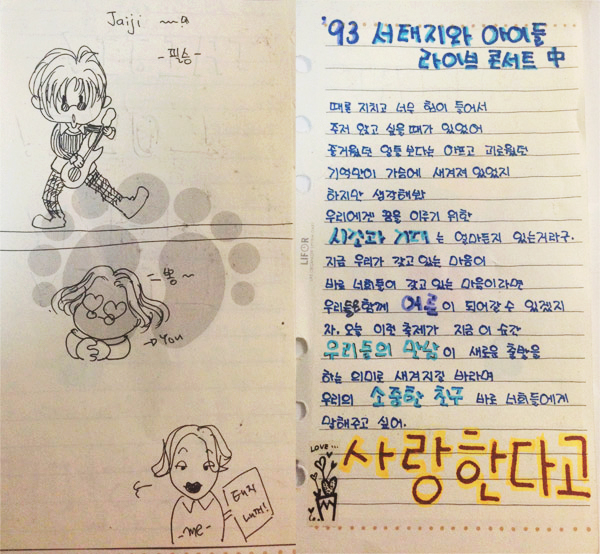 Jaiji
-필승-
=뿅~
→You
태지
내꺼!
-me-
'93 서태지와 아이들
라이브 콘서트 中
때로 지치고 너무 힘이 들어서
주저 앉고 싶을 때가 있었어
즐거웠던 일들 보다는 아프고 괴로웠던
기억만이 가슴에 새겨져 있었지
하지만 생각해봐
우리에겐 꿈을 이루기 위한
시간과 기대는 얼마든지 있는거라구.
지금 우리가 갖고 있는 마음이
바로 너희들이 갖고 있는 마음이라면
우리들은 함께 여름이 되어갈 수 있겠지
자, 오늘 이런 축제가 지금 이 순간
우리들의 만남이 새로운 출발을
하는 의미로 새겨지길 바라며
우리의 소중한 친구 바로 너희들에게
말해주고 싶어.
LIFOR
LOVE...
사랑한다고